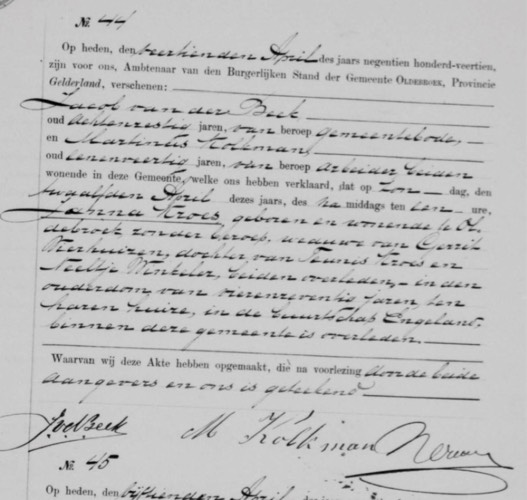 № 44
Op heden, den veertienden April des jaars negentien honderd-veertien,
zijn voor ons, Ambtenaar van den Burgerlijken Stand der Gemeente OLDEBROEK, Provincie
Gelderland, verschenen:
Jacob van der Beek
oud achtenzestig jaren, van beroep gemeentebode,
en Martinus Kolkman,
oud eenenveertig jaren, van beroep arbeider beiden
wonende in deze Gemeente, welke ons hebben verklaard, dat op Zon- dag, den
twaalfden April dezes jaars, des na middags ten een ure,
Janna Kroes geboren en wonende te Ol-
debroek zonder beroep, weduwe van Gerrit
, dochter van Teunis Kroes en
Neeltje , beiden overleden, - in den
ouderdom van vierenzeventig jaren ten
haren huize, in de buurtschap Engeland,
binnen deze gemeente is overleden.
Waarvan wij deze Akte hebben opgemaakt, die na voorlezing door beide
aangevers en ons is geteekend
JvdBeek M Kolkman
№ 45
Op heden, den vijftienden April des